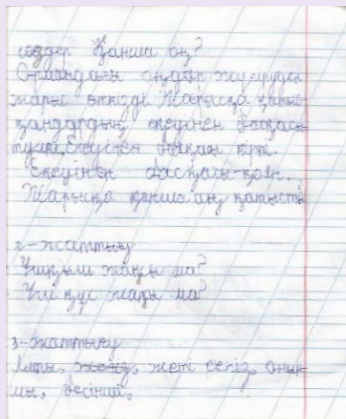 сөздер Қанша аң?
Ормандағы аңдар жүгіруден
жарыс өткізді Жарысқа қатыс-
қандардың екеуінен басқасы
түлкі, екеуінен басқасы кірпі.
Екеуінен басқасы-қоян.
Жарысқа қанша аң қатысты
2-жаттығу
Ұшқыш жақсы ма?
Үй құс жақсы ма?
3-жаттығу
Алты, жеті сегіз, оныншы